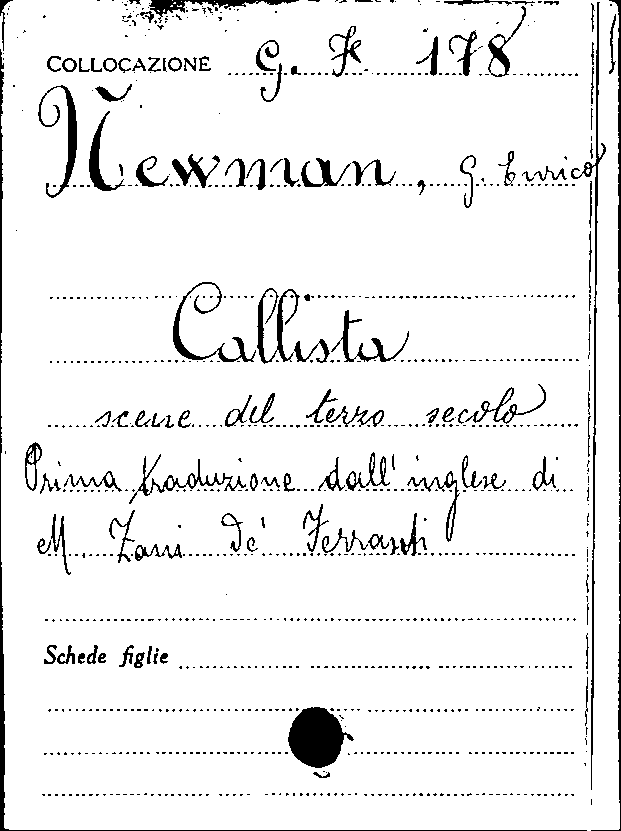 COLLOCAZIONE G. K 178
Newman, G. Enrico
Callista
scene del terzo secolo
Prima traduzione dall'inglese di
M. Zani De' Ferranti
Schede figlie